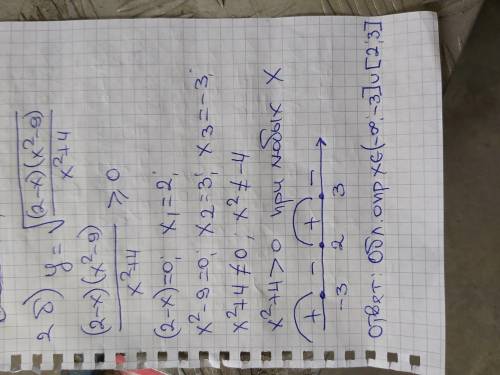 2 б) y = √((2-x)(x²-9) / x²+4)
(2-x)(x²-9) / x²+4 ⩾ 0
(2-x)=0; x₁=2;
x²-9=0; x₂=3; x₃=-3;
x²+4≠0; x²≠-4
x²+4>0 при любых x
+ - + -
-3 2 3
Ответ: Обл. опр x∈(-∞;-3]∪[2;3]